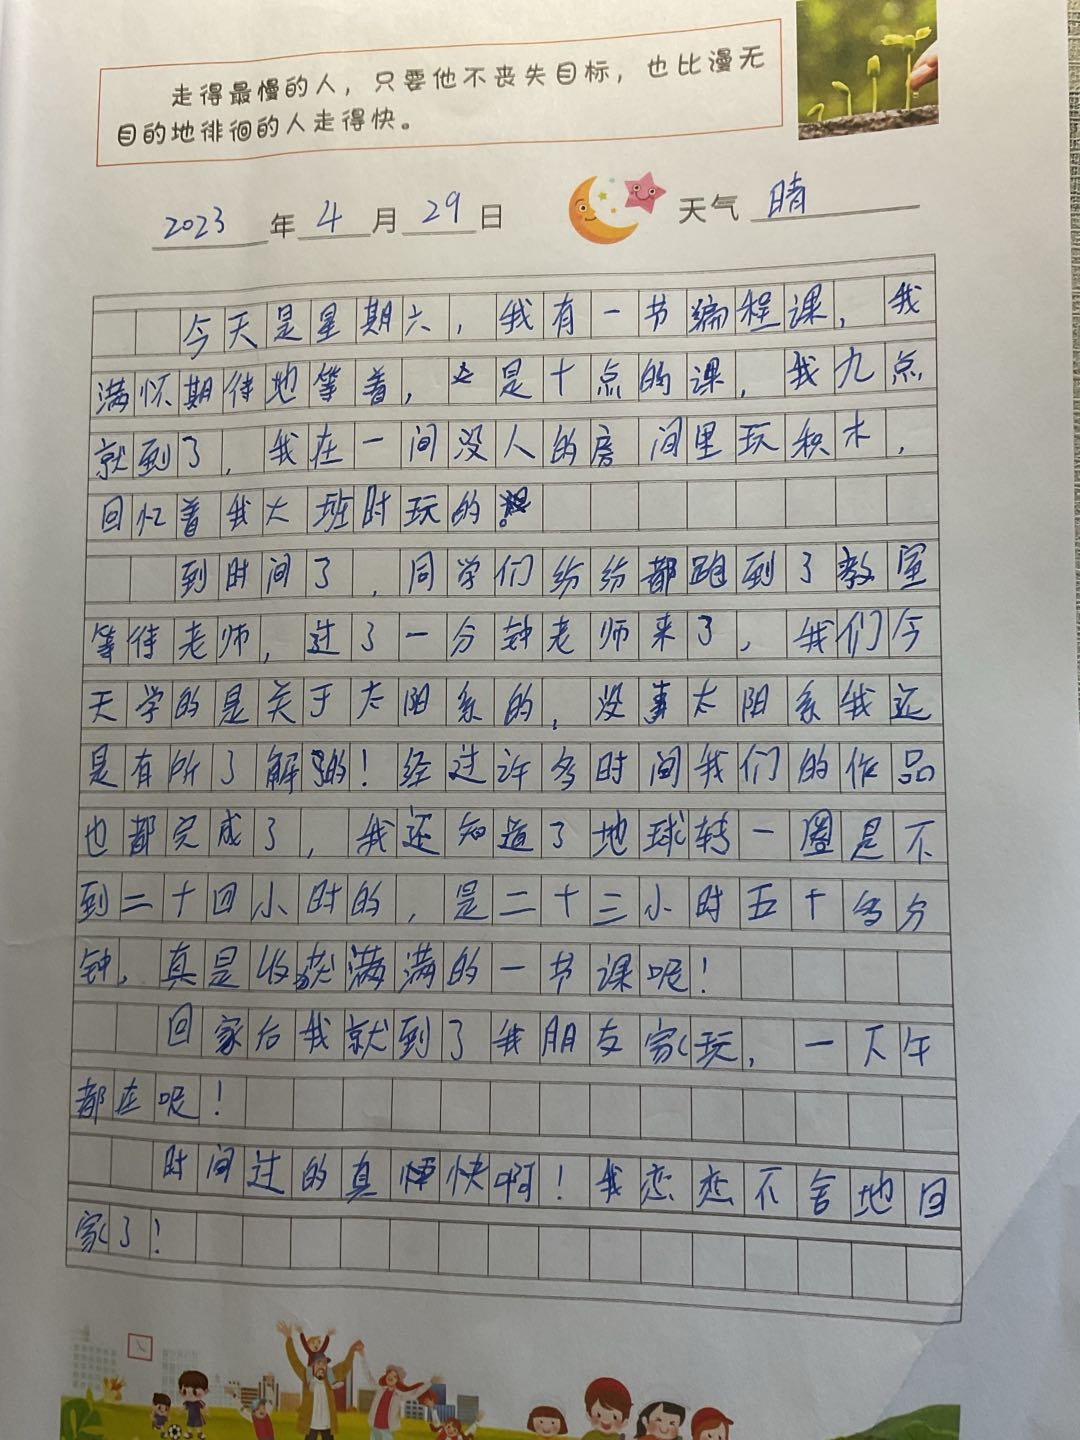 走得最慢的人，只要他不丧失目标，也比漫无
目的地徘徊的人走得快。
2023年4月29日 天气 晴
今天是星期六，我有一节编程课，我
满怀期待地等着，是十点的课，我九点
就到了，我在一间没人的房间里玩积木，
回忆着我大班时玩的
到时间了，同学们纷纷都跑到了教室
等待老师，过了一分钟老师来了，我们今
天学的是关于太阳系的，没事太阳系我还
是有所了解的！经过许多时间我们的作品
也都完成了，我还知道了地球转一圈是不
到二十四小时的，是二十三小时五十多分
钟，真是收获满满的一节课呢！
回家后我就到了我朋友家玩，一下午
都在呢！
时间过的真快啊！我恋恋不舍地回
家了！